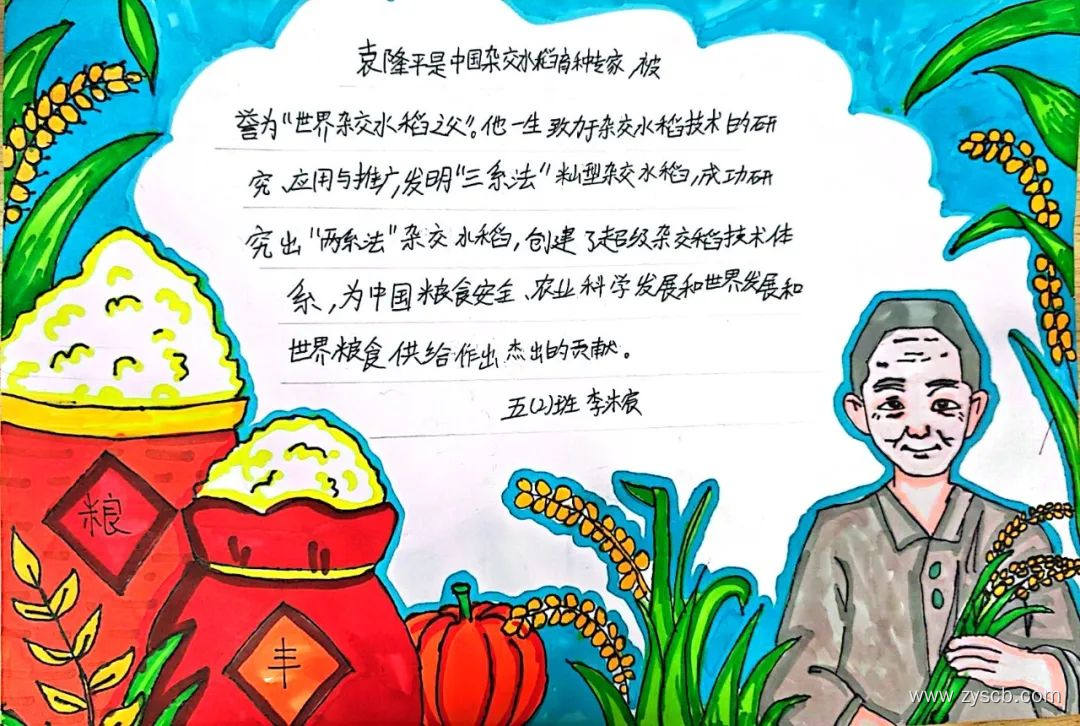 袁隆平是中国杂交水稻育种专家,被
誉为“世界杂交水稻之父”。他一生致力于杂交水稻技术的研
究、应用与推广,发明“三系法”籼型杂交水稻,成功研
究出“两系法”杂交水稻,创建了超级杂交稻技术体
系,为中国粮食安全、农业科学发展和世界发展和
世界粮食供给作出杰出的贡献。
五(2)班 李沐宸
粮
丰
www.zyscb.com